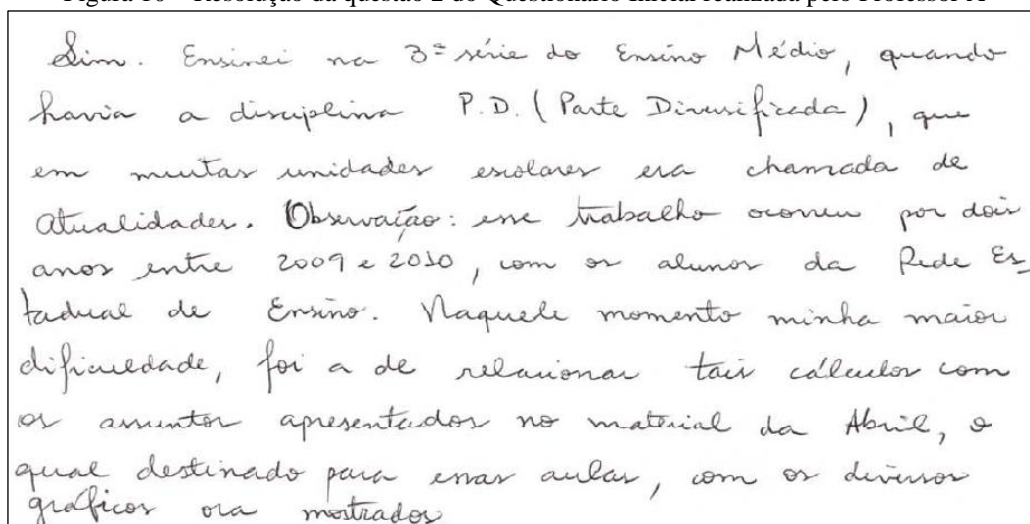 Figura 10 – Resolução da questão 2 do Questionário Inicial realizada pelo Professor A
Sim. Ensinei na 3ª série do Ensino Médio, quando
havia a disciplina P.D. (Parte Diversificada), que
em muitas unidades escolares era chamada de
atualidades. Observação: esse trabalho ocorreu por dois
anos entre 2009 e 2010, com os alunos da Rede Es_
tadual de Ensino. Naquele momento minha maior
dificuldade, foi a de relacionar tais cálculos com
os assuntos apresentados no material da Abril, o
qual destinado para essas aulas, com os diversos
gráficos ora mostrados